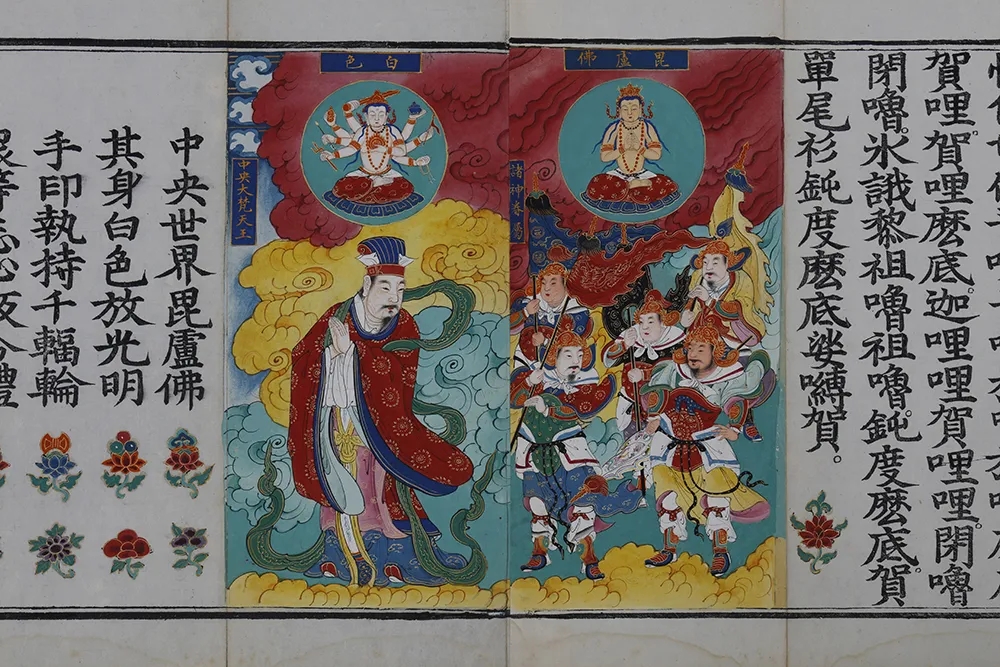 賀哩。賀哩麽底。迦哩哩賀哩哩。閉嚕
閉嚕。氷誐黎祖嚕祖嚕。鈍度麽底賀。
單尾衫鈍度麽底娑嚩賀。
毘盧佛
諸神眷屬
白色
中央大梵天王
中央世界毘盧佛
其身白色放光明
手印執持千輻輪